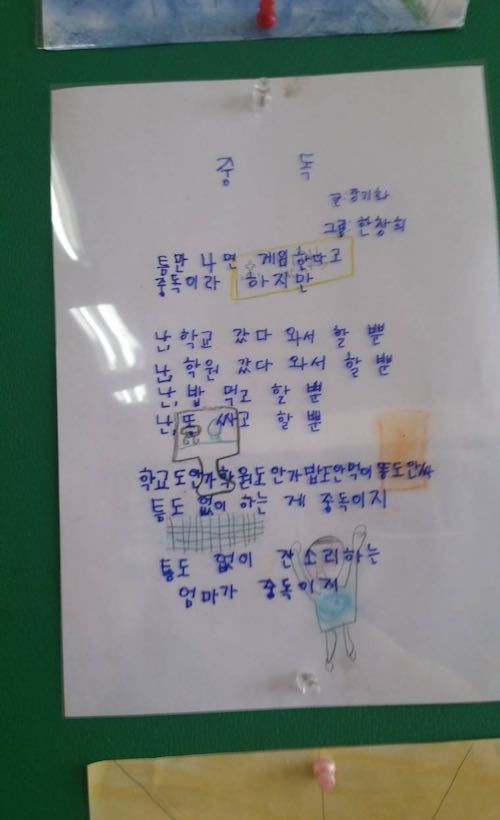 중독
글 장기화
그림 한창희
틈만 나면 게임한다고
중독이라 하지만
난, 학교 갔다 와서 할 뿐
난, 학원 갔다 와서 할 뿐
난, 밥 먹고 할 뿐
난, 똥 싸고 할 뿐
학교도안가학원도안가밥도안먹어똥도안싸
틈도 없이 하는 게 중독이지
틈도 없이 잔소리하는
엄마가 중독이지